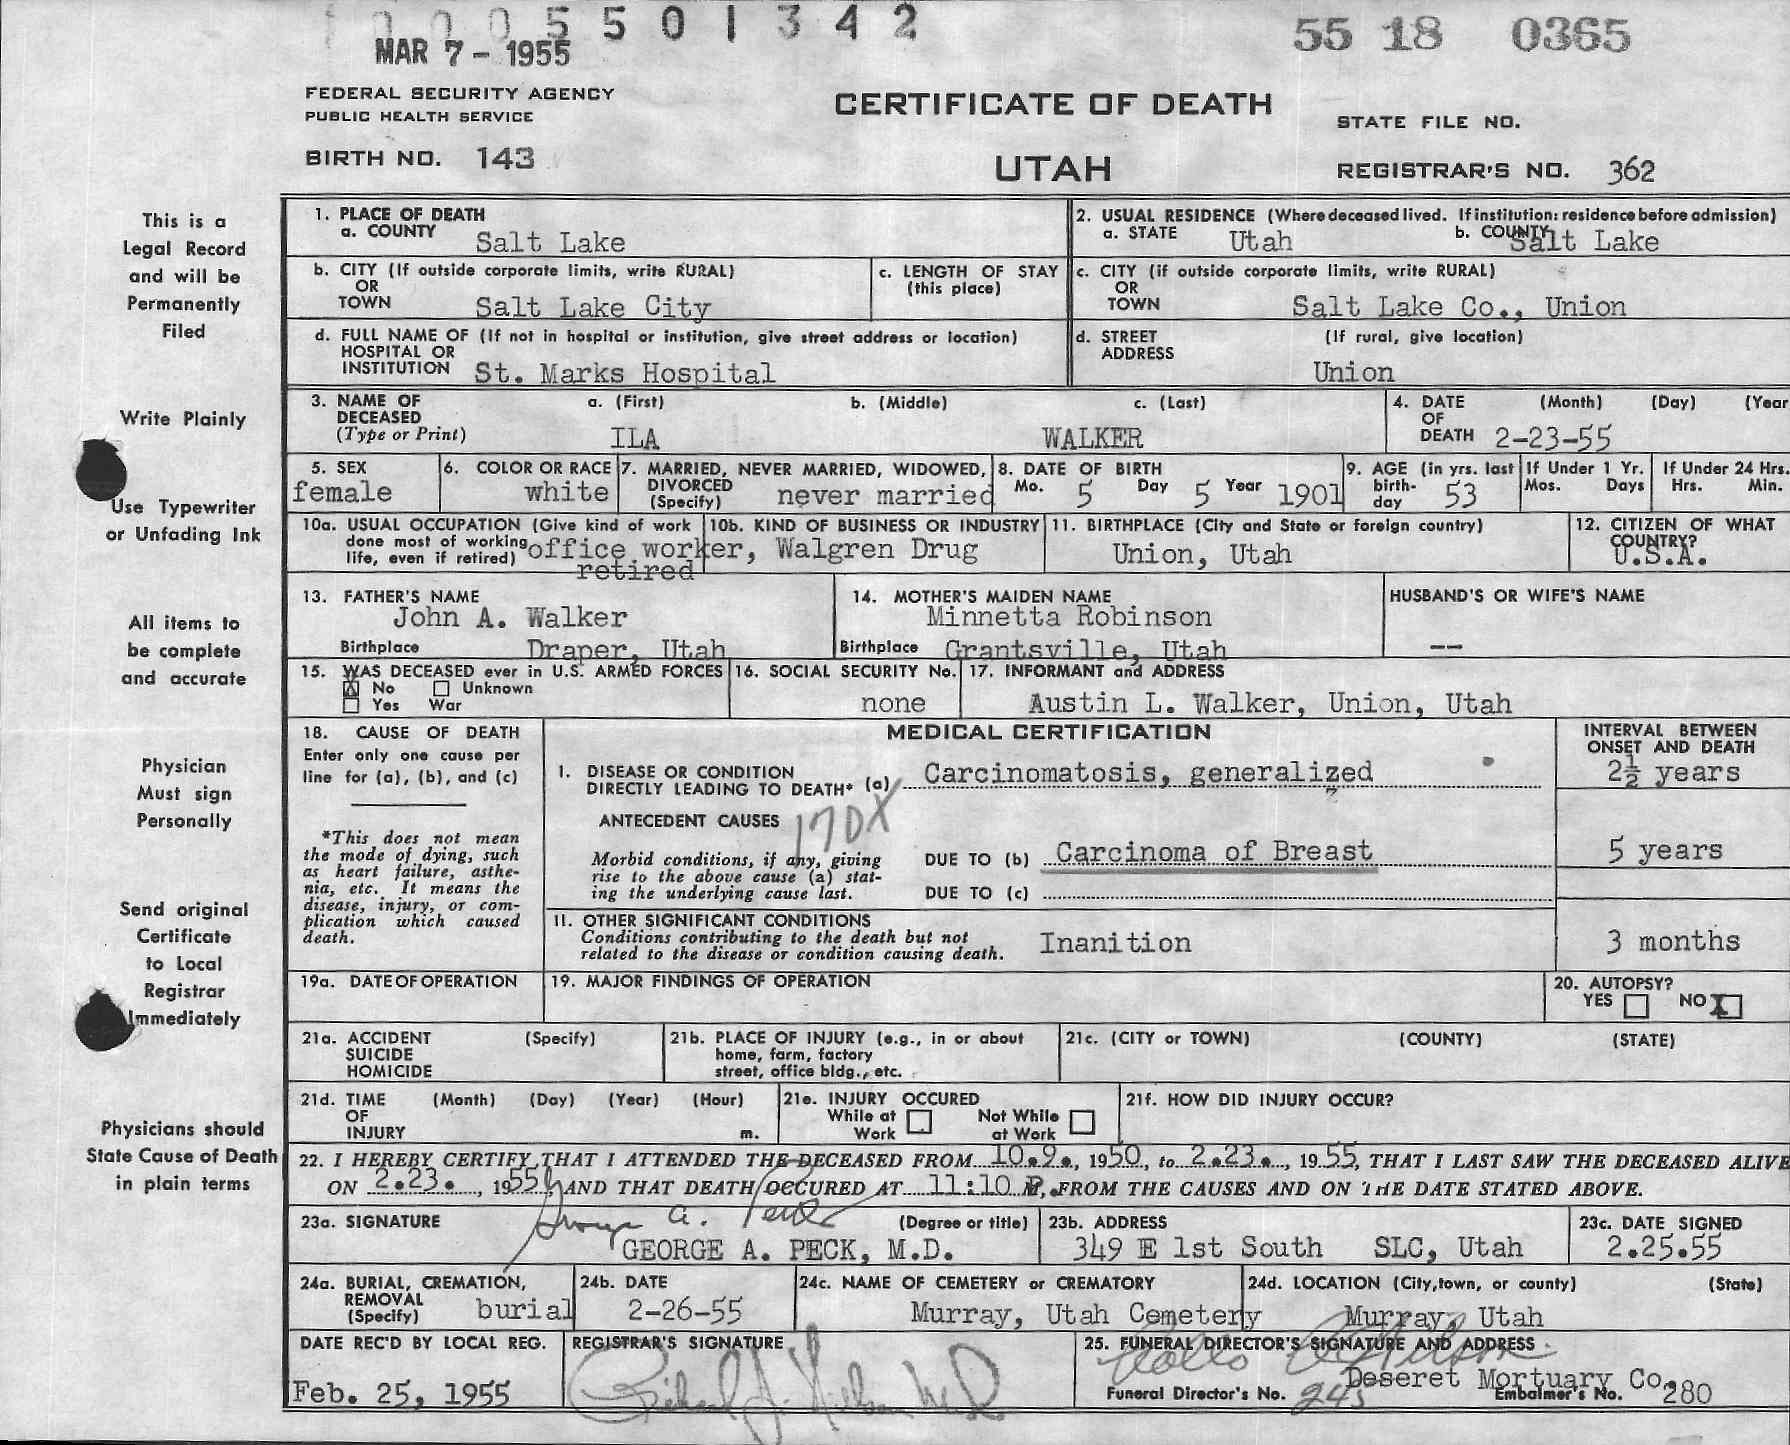 0005501342
55 18 0365
MAR 7 - 1955
FEDERAL SECURITY AGENCY
PUBLIC HEALTH SERVICE
CERTIFICATE OF DEATH
STATE FILE NO.
BIRTH NO. 143
UTAH
REGISTRAR'S NO. 362
This is a
Legal Record
and will be
Permanently
Filed
Write Plainly
Use Typewriter
or Unfading Ink
All items to
be complete
and accurate
Physician
Must sign
Personally
Send original
Certificate
to Local
Registrar
Immediately
Physicians should
State Cause of Death
in plain terms
1. PLACE OF DEATH
a. COUNTY Salt Lake
2. USUAL RESIDENCE (Where deceased lived. If institution: residence before admission)
a. STATE Utah b. COUNTY Salt Lake
b. CITY (If outside corporate limits, write RURAL)
OR
TOWN Salt Lake City
c. LENGTH OF STAY
(this place)
c. CITY (if outside corporate limits, write RURAL)
OR
TOWN Salt Lake Co., Union
d. FULL NAME OF (If not in hospital or institution, give street address or location)
HOSPITAL OR
INSTITUTION St. Marks Hospital
d. STREET (If rural, give location)
ADDRESS
Union
3. NAME OF a. (First) b. (Middle) c. (Last)
DECEASED
(Type or Print) ILA WALKER
4. DATE (Month) (Day) (Year
OF
DEATH 2-23-55
5. SEX
female
6. COLOR OR RACE
white
7. MARRIED, NEVER MARRIED, WIDOWED,
DIVORCED
(Specify) never married
8. DATE OF BIRTH
Mo. 5 Day 5 Year 1901
9. AGE (in yrs. last
birth-
day 53
If Under 1 Yr.
Mos. Days
If Under 24 Hrs.
Hrs. Min.
10a. USUAL OCCUPATION (Give kind of work
done most of working
life, even if retired) office worker, Walgren Drug
retired
10b. KIND OF BUSINESS OR INDUSTRY
11. BIRTHPLACE (City and State or foreign country)
Union, Utah
12. CITIZEN OF WHAT
COUNTRY?
U.S.A.
13. FATHER'S NAME
John A. Walker
Birthplace Draper, Utah
14. MOTHER'S MAIDEN NAME
Minnetta Robinson
Birthplace Grantsville, Utah
HUSBAND'S OR WIFE'S NAME
--
15. WAS DECEASED ever in U.S. ARMED FORCES
X No Unknown
Yes War
16. SOCIAL SECURITY No.
none
17. INFORMANT and ADDRESS
Austin L. Walker, Union, Utah
18. CAUSE OF DEATH
Enter only one cause per
line for (a), (b), and (c)
*This does not mean
the mode of dying, such
as heart failure, asthe-
nia, etc. It means the
disease, injury, or com-
plication which caused
death.
MEDICAL CERTIFICATION
INTERVAL BETWEEN
ONSET AND DEATH
I. DISEASE OR CONDITION
DIRECTLY LEADING TO DEATH* (a) Carcinomatosis, generalized 2½ years
ANTECEDENT CAUSES 170X
Morbid conditions, if any, giving
rise to the above cause (a) stat-
ing the underlying cause last.
DUE TO (b) Carcinoma of Breast 5 years
DUE TO (c)
II. OTHER SIGNIFICANT CONDITIONS
Conditions contributing to the death but not
related to the disease or condition causing death.
Inanition 3 months
19a. DATE OF OPERATION
19. MAJOR FINDINGS OF OPERATION
20. AUTOPSY?
YES NO X
21a. ACCIDENT (Specify)
SUICIDE
HOMICIDE
21b. PLACE OF INJURY (e.g., in or about
home, farm, factory
street, office bldg., etc.
21c. (CITY or TOWN) (COUNTY) (STATE)
21d. TIME (Month) (Day) (Year) (Hour)
OF
INJURY m.
21e. INJURY OCCURED
While at Work Not While at Work
21f. HOW DID INJURY OCCUR?
22. I HEREBY CERTIFY THAT I ATTENDED THE DECEASED FROM 10.9., 1950, to 2.23., 1955, THAT I LAST SAW THE DECEASED ALIVE
ON 2.23., 1955, AND THAT DEATH OCCURED AT 11:10 P., FROM THE CAUSES AND ON THE DATE STATED ABOVE.
23a. SIGNATURE (Degree or title)
George A. Peck
GEORGE A. PECK, M.D.
23b. ADDRESS
349 E 1st South SLC, Utah
23c. DATE SIGNED
2.25.55
24a. BURIAL, CREMATION,
REMOVAL
(Specify) burial
24b. DATE
2-26-55
24c. NAME OF CEMETERY or CREMATORY
Murray, Utah Cemetery
24d. LOCATION (City, town, or county) (State)
Murray, Utah
DATE REC'D BY LOCAL REG.
Feb. 25, 1955
REGISTRAR'S SIGNATURE
25. FUNERAL DIRECTOR'S SIGNATURE AND ADDRESS
Deseret Mortuary Co.
Funeral Director's No. 245 Embalmer's No. 280